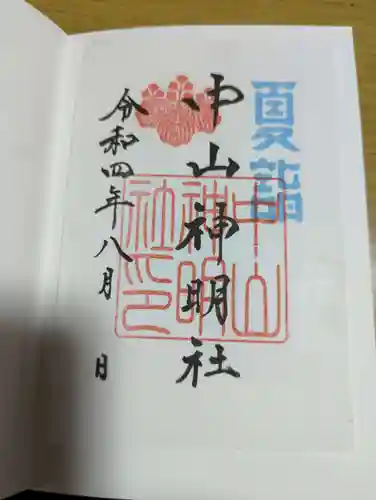 夏詣
中山神明社
中山
神明
社印
令和四年八月 日